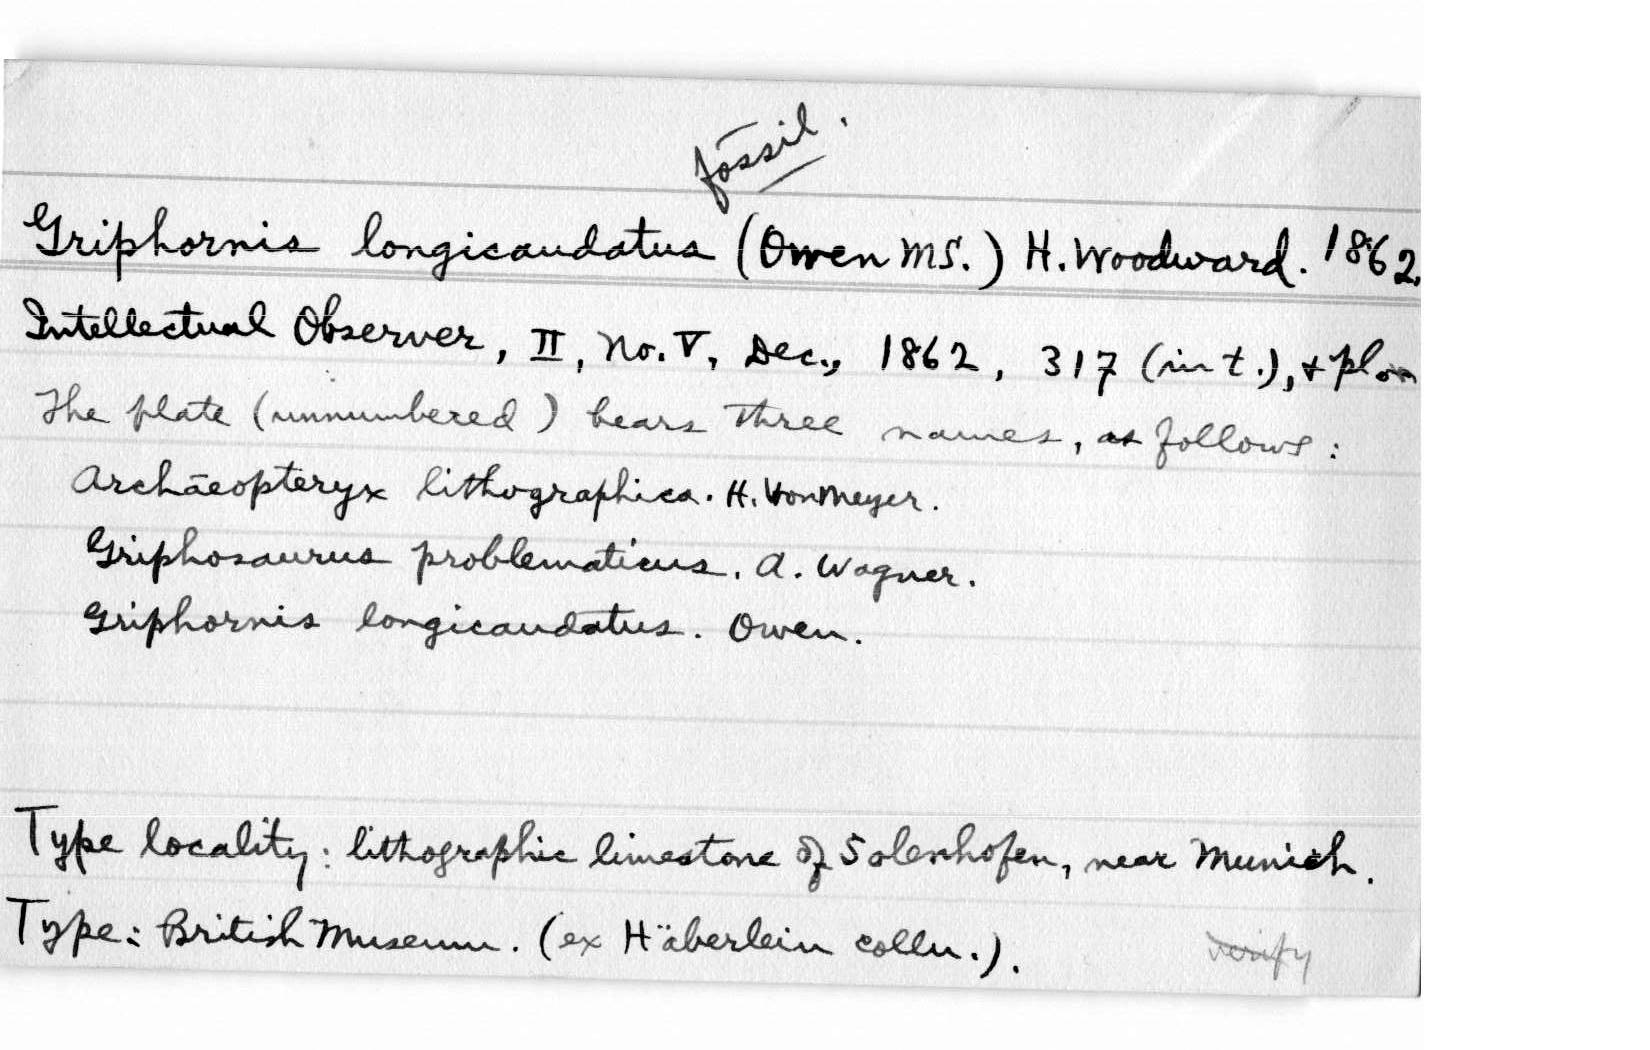 fossil.
Griphornis longicaudatus (Owen MS.) H. Woodward. 1862.
Intellectual Observer, II, No. V, Dec., 1862, 317 (in t.), + pl.
The plate (unnumbered) bears three names, as follows:
Archaeopteryx lithographica. H. Von Meyer.
Griphosaurus problematicus. A. Wagner.
Griphornis longicaudatus. Owen.
Type locality: lithographic limestone of Solenhofen, near Munich.
Type: British Museum. (ex Häberlein colln.).
verify